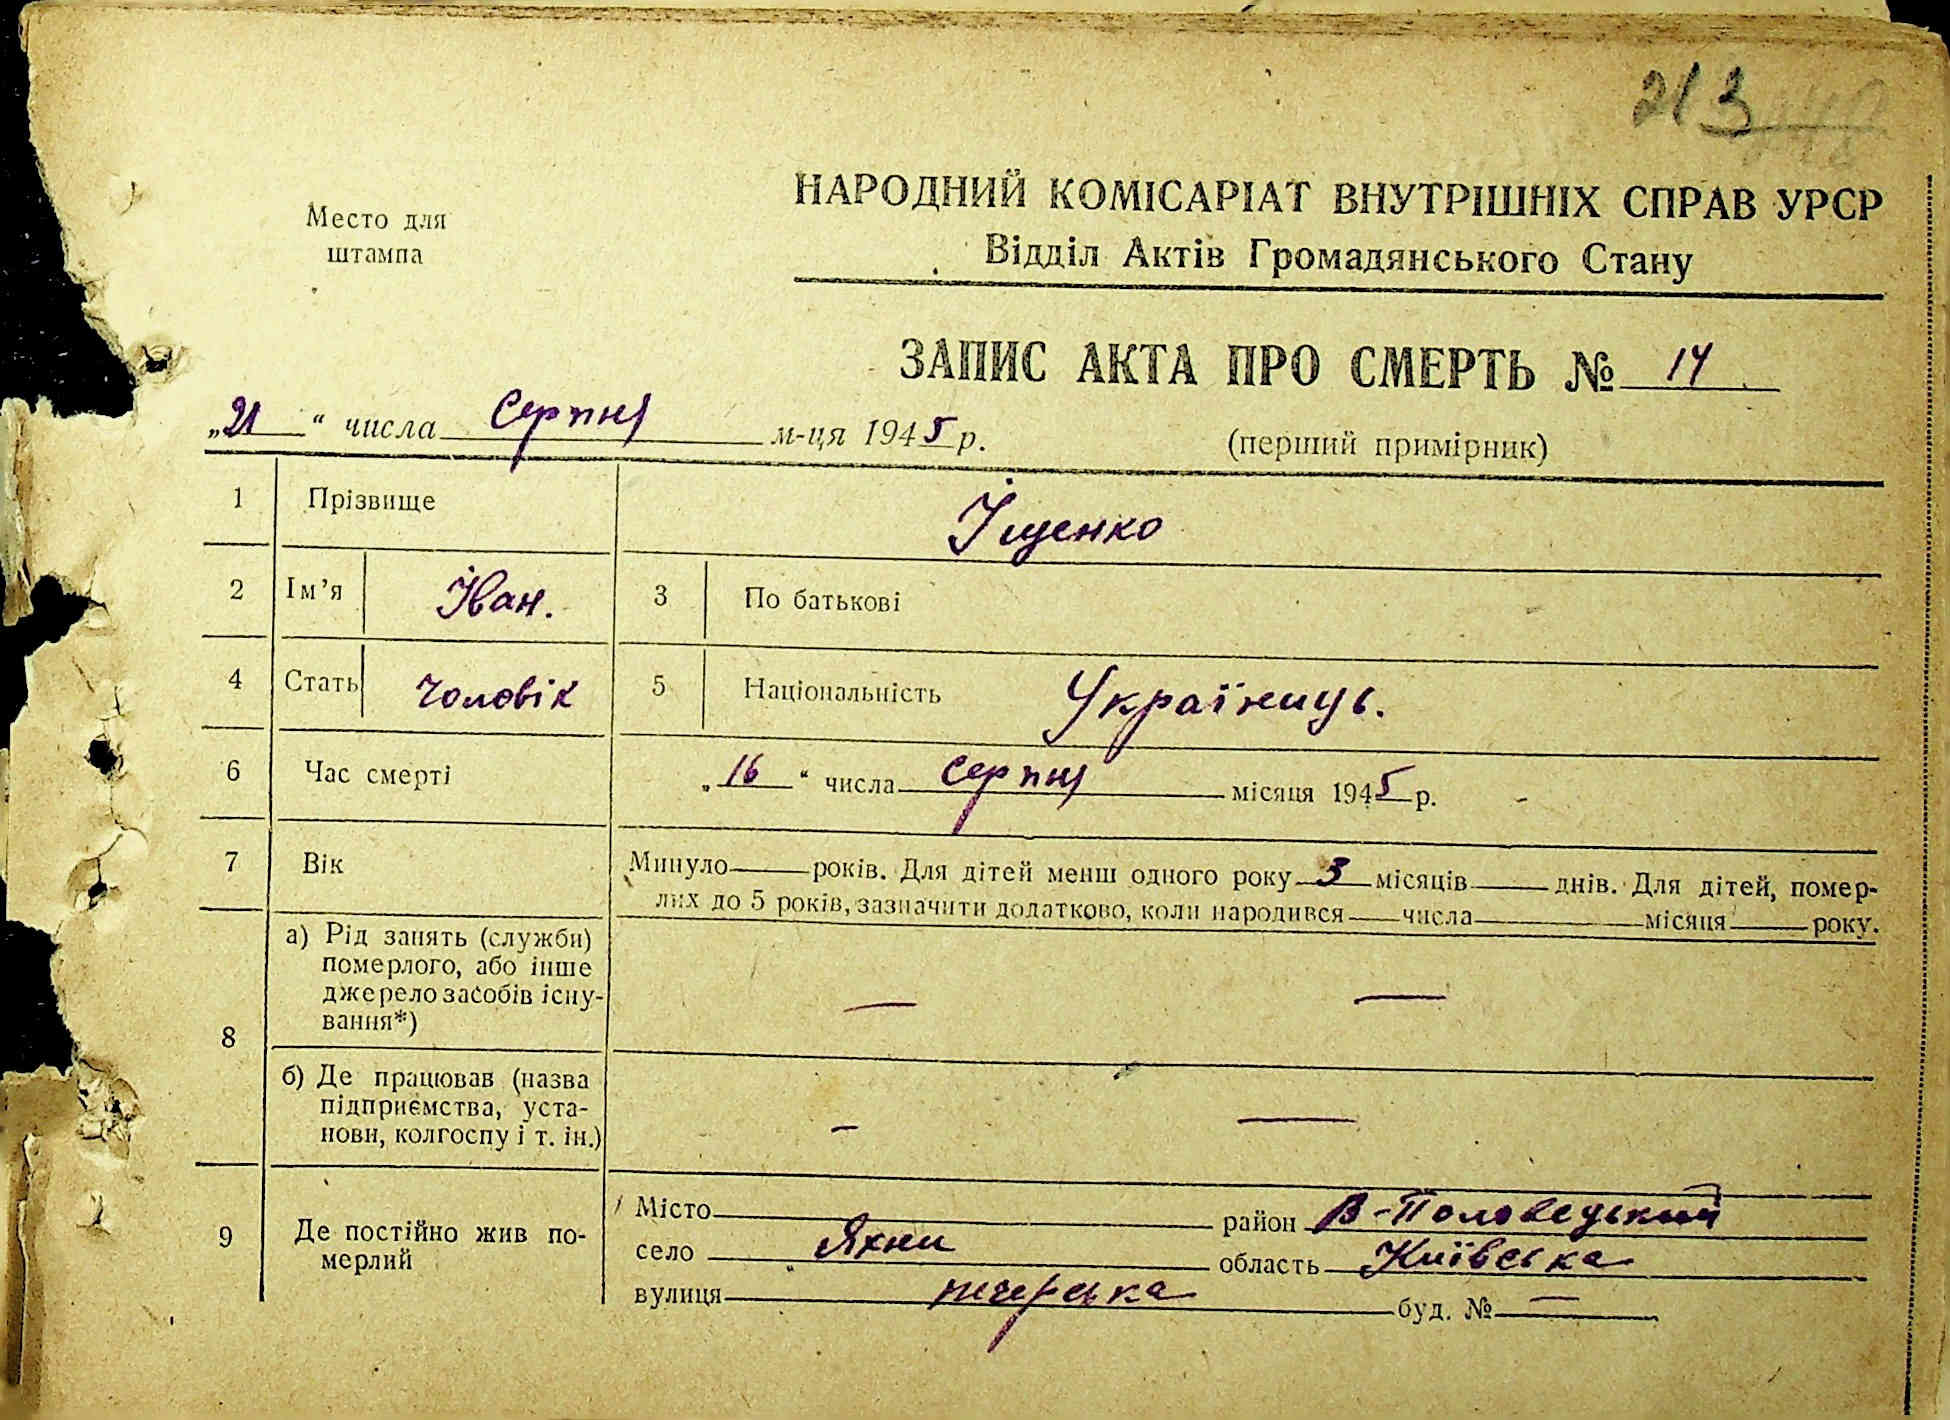 213
НАРОДНИЙ КОМІСАРІАТ ВНУТРІШНІХ СПРАВ УРСР
Відділ Актів Громадянського Стану
Место для
штампа
ЗАПИС АКТА ПРО СМЕРТЬ № 14
„21“ числа Серпня м-ця 1945 р.
(перший примірник)
1 Прізвище Іщенко
2 Ім’я Іван. 3 По батькові
4 Стать чоловік 5 Національність Українець.
6 Час смерті „16“ числа серпня місяця 1945 р.
7 Вік Минуло — років. Для дітей менш одного року 3 місяців — днів. Для дітей, помер-
лих до 5 років, зазначити додатково, коли народився — числа — місяця — року.
8 а) Рід занять (служби)
померлого, або інше
джерело засобів існу-
вання*) — —
б) Де працював (назва
підприємства, уста-
нови, колгоспу і т. ін.) — —
9 Де постійно жив по-
мерлий
Місто район В-Половецький
село Яхни область Київська
вулиця печерська буд. № —